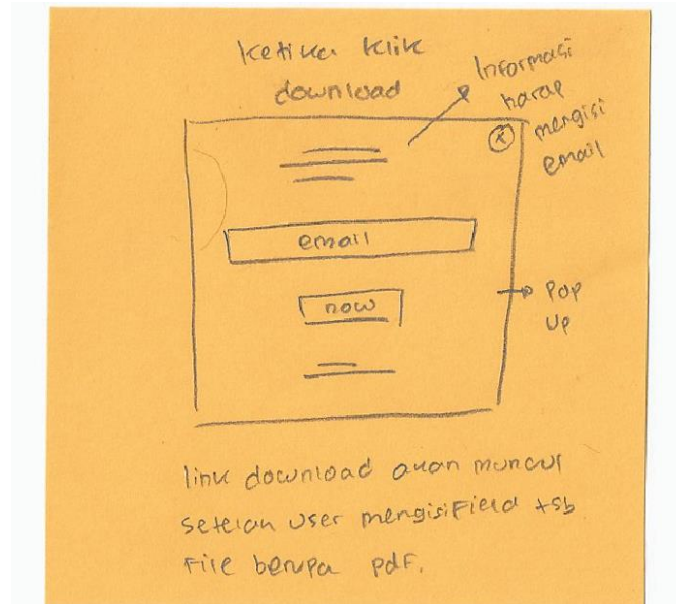 ketika klik
download
Informasi
harap
mengisi
email
x
email
now
Pop
Up
link download akan muncul
setelah user mengisi Field tsb
File berupa pdf.